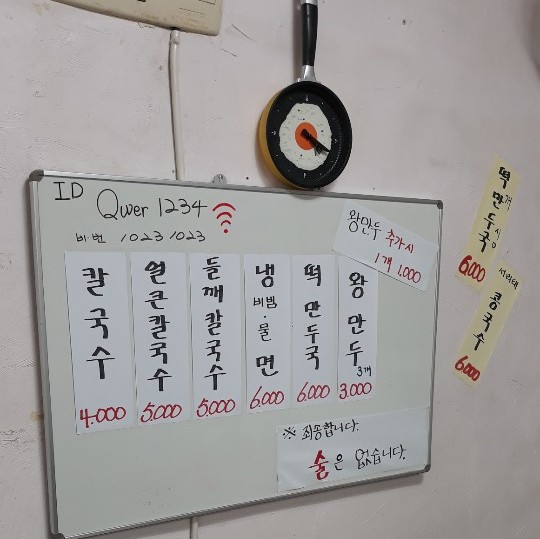 ID Qwer 1234
비번 1023 1023
왕만두 추가시
1개 1.000
칼국수
4.000
얼큰칼국수
5.000
들깨칼국수
5.000
냉면
비빔·물
6.000
떡만두국
6.000
왕만두
3개
3.000
※ 죄송합니다.
술은 없습니다.
떡만두국
개시
6.000
서리태
콩국수
6.000